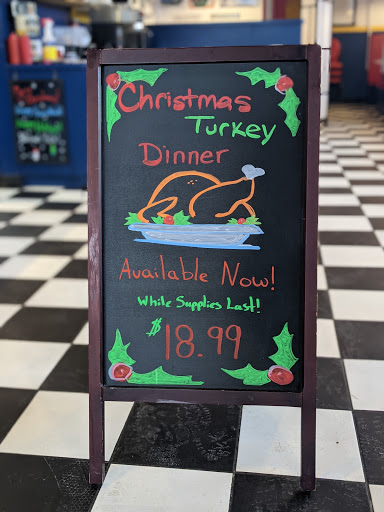 Christmas
Turkey
Dinner
Available Now!
While Supplies Last!
$18.99